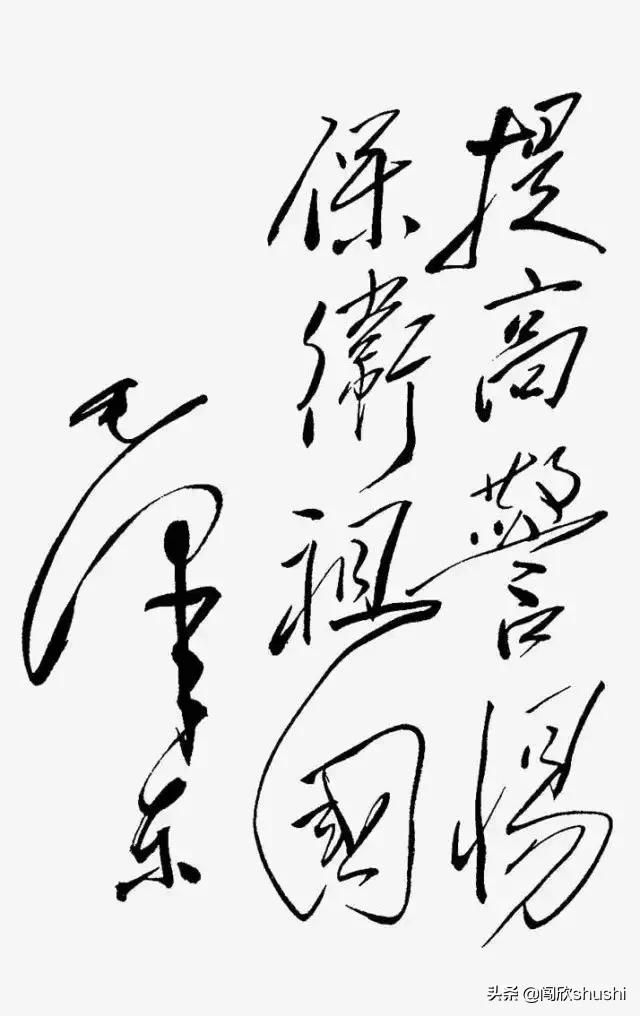 提高警惕
保衛祖國
毛泽东
头条 @闯欣shushi